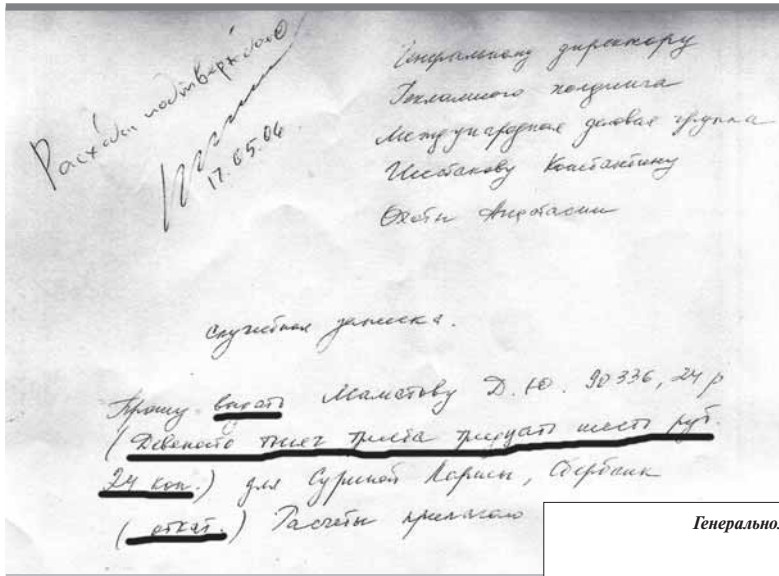 Расходы подтверждаю
17.05.04
Генеральному директору
Рекламного холдинга
Международная деловая группа
Шестакову Константину
Охоты Анастасии
служебная записка.
Прошу выдать Маматову Д.Ю. 90336,24 р
(Девяносто тысяч триста тридцать шесть руб.
24 коп.) для Суриной Ларисы, Сбербанк
(откат.) Расчеты прилагаю
Генерально